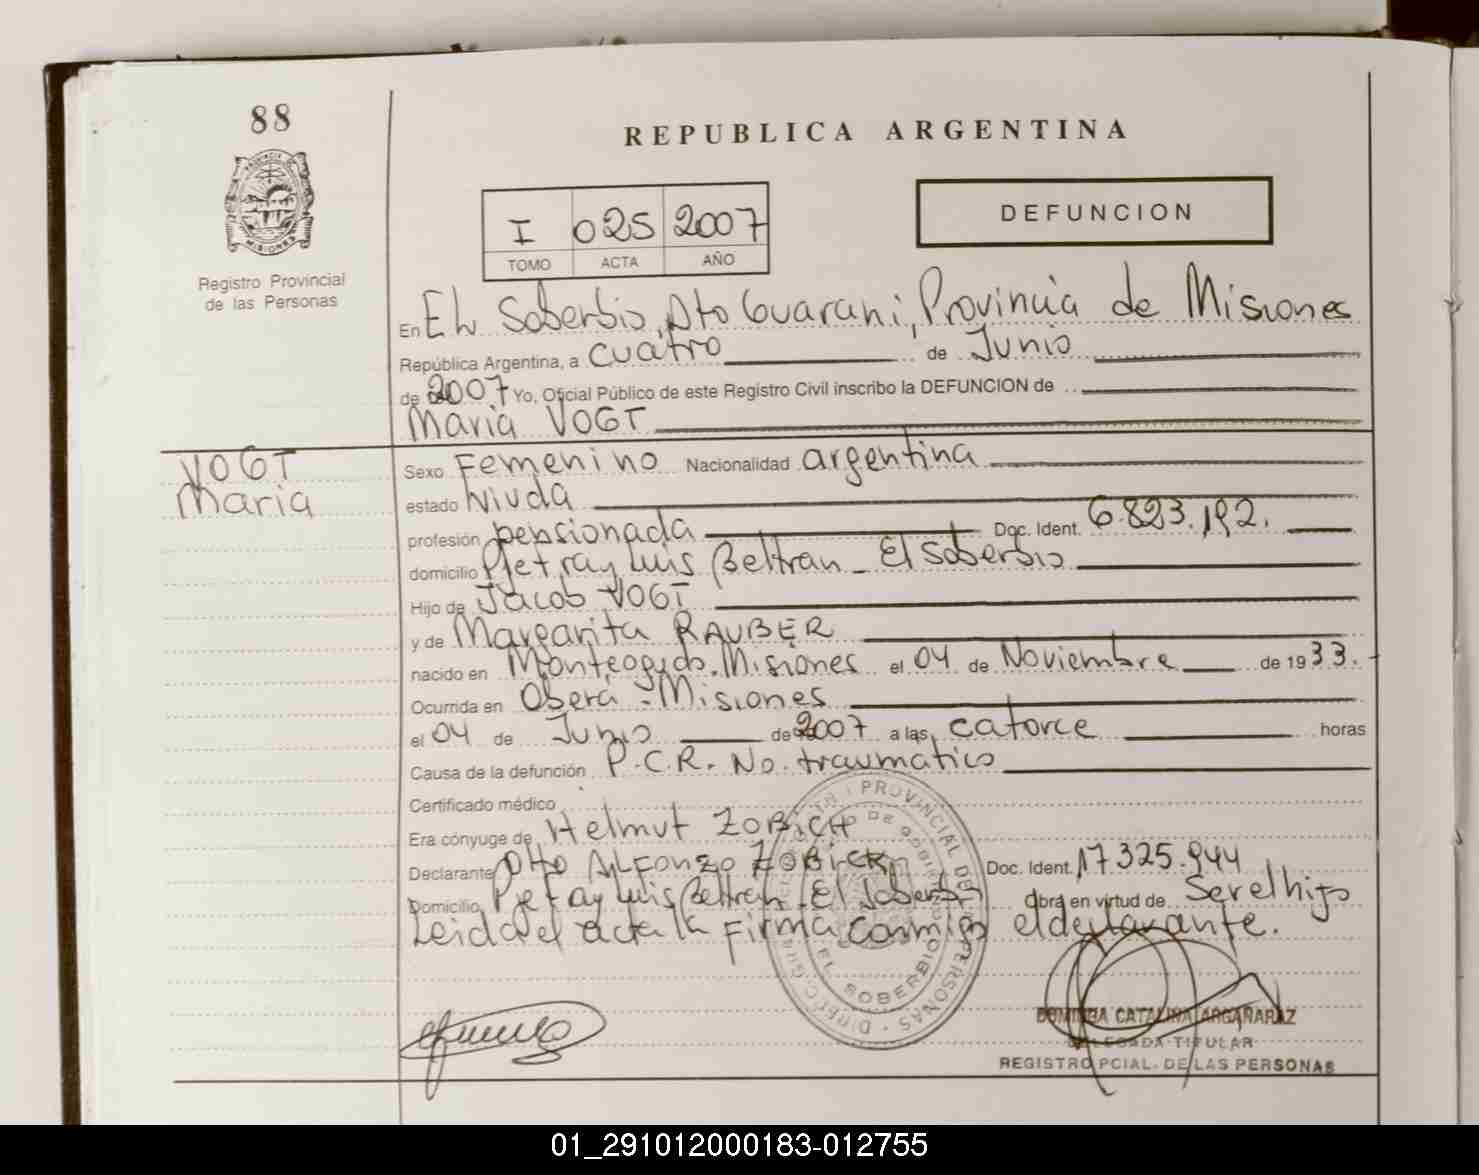 88
REPUBLICA ARGENTINA
I 025 2007
TOMO ACTA AÑO
DEFUNCION
Registro Provincial
de las Personas
En El Soberbio, Dto Guarani, Provincia de Misiones
República Argentina, a cuatro de Junio
de 2007 Yo, Oficial Público de este Registro Civil inscribo la DEFUNCION de
Maria VOGT
VOGT
Maria
Sexo Femenino Nacionalidad argentina
estado Viuda
profesión pensionada Doc. Ident. 6.823.192.
domicilio Luis Beltran - El Soberbio
Hijo de Jacob VOGT
y de Margarita RAUBER
nacido en Misiones el 04 de Noviembre de 1933.
Ocurrida en Oberá - Misiones
el 04 de Junio de 2007 a las catorce horas
Causa de la defunción P.C.R. No traumatico
Certificado médico
Era cónyuge de Helmut ZOBICH
Declarante Otto ALFONZO Doc. Ident. 17.325.944
Domicilio Luis Beltran - El Soberbio Obra en virtud de Ser el hijo
Leida el acta la firma conmigo el declarante.
DIREC. GRAL. PROVINCIAL DE PERSONAS
EL SOBERBIO
CATALINA ARGAÑARAZ
DELEGADA TITULAR
REGISTRO PCIAL. DE LAS PERSONAS
01_291012000183-012755